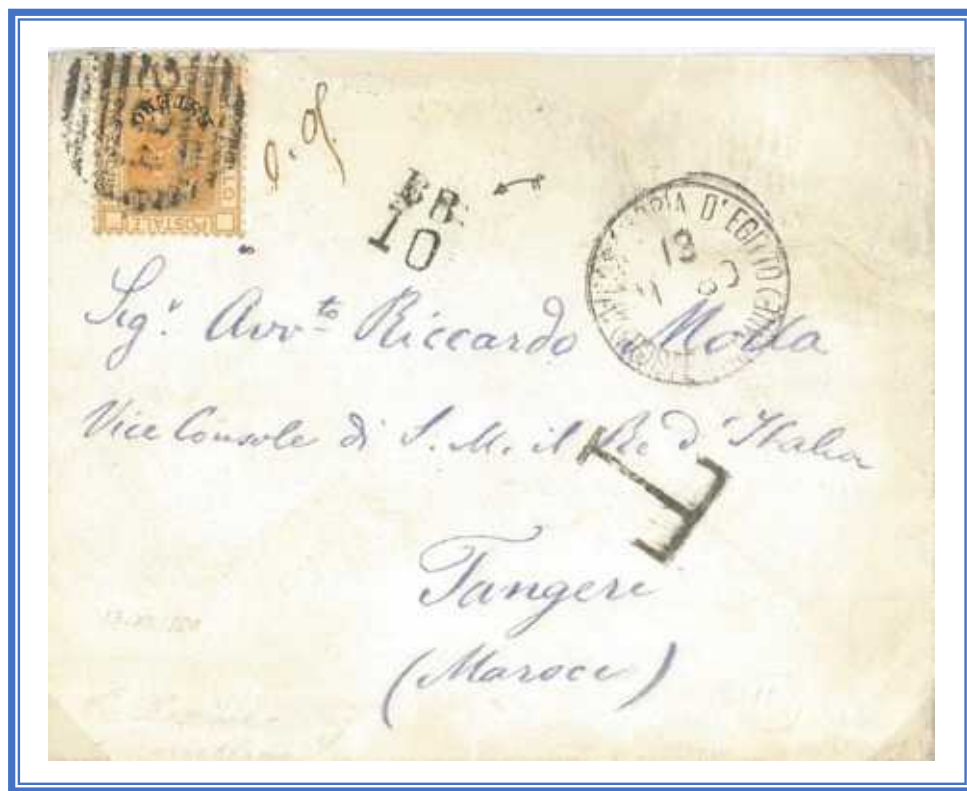 ESTERO
L POSTALE
BR.
10
D'EGITTO
18
Sigr. Avvto Riccardo Motta
Vice Console di S. M. il Re d'Italia
T
Tangeri
(Marocco)